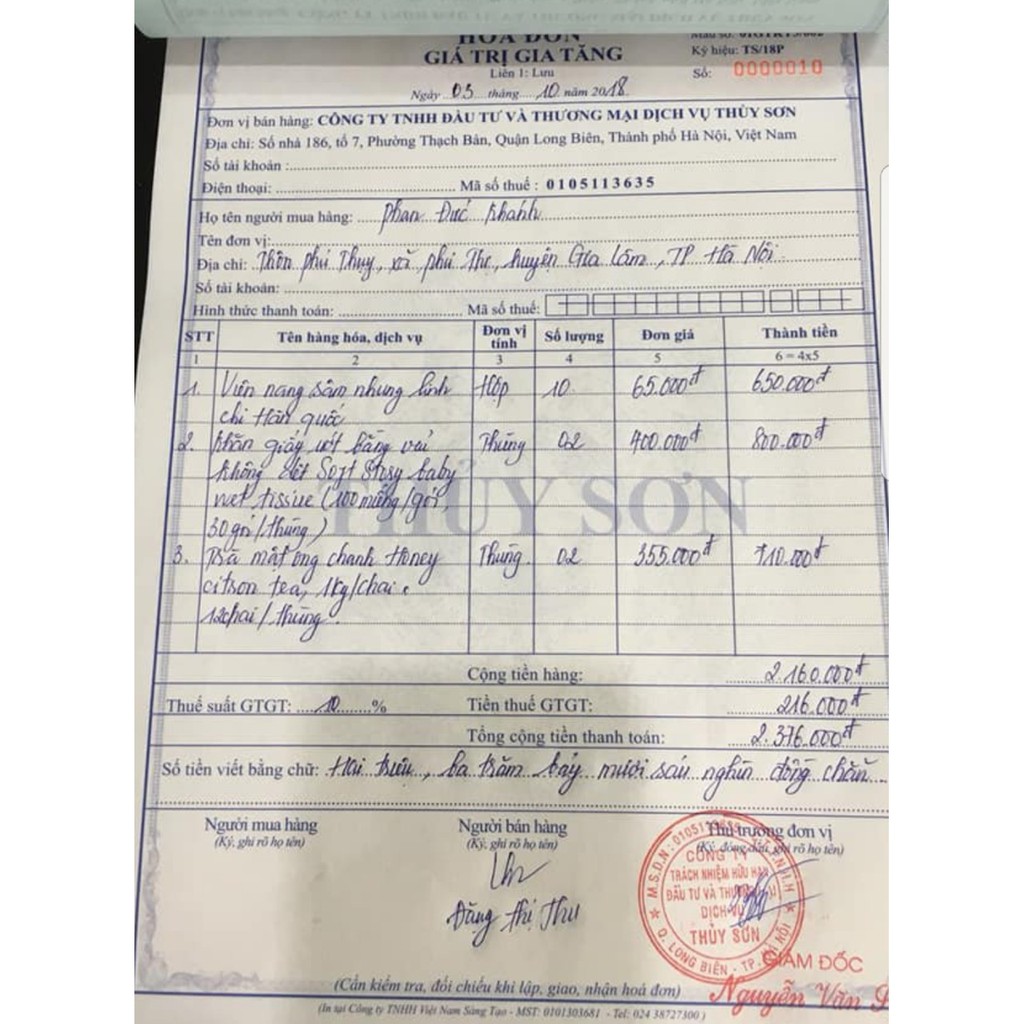 HÓA ĐƠN
GIÁ TRỊ GIA TĂNG
Liên 1: Lưu
Ngày 03 tháng 10 năm 2018
Mẫu số: 01GTKT3/002
Ký hiệu: TS/18P
Số: 0000010
Đơn vị bán hàng: CÔNG TY TNHH ĐẦU TƯ VÀ THƯƠNG MẠI DỊCH VỤ THỦY SƠN
Địa chỉ: Số nhà 186, tổ 7, Phường Thạch Bàn, Quận Long Biên, Thành phố Hà Nội, Việt Nam
Số tài khoản:
Điện thoại: Mã số thuế: 0105113635
Họ tên người mua hàng: Phan Đức Khánh
Tên đơn vị:
Địa chỉ: Thôn phú Thụy, xã phú Thị, huyện Gia Lâm, TP Hà Nội.
Số tài khoản:
Hình thức thanh toán: Mã số thuế:
STT Tên hàng hóa, dịch vụ Đơn vị tính Số lượng Đơn giá Thành tiền
1 2 3 4 5 6 = 4x5
1. Viên nang sâm nhung linh Hộp 10 65.000đ 650.000đ
chi Hàn quốc
2. Khăn giấy ướt bằng vải Thùng 02 400.000đ 800.000đ
không dệt Soft Story baby
wet tissue (100 miếng/gói,
30gói/thùng)
3. Trà mật ong chanh Honey Thùng 02 355.000đ 710.000đ
citron tea, 1kg/chai.
12chai/thùng.
THỦY SƠN
Cộng tiền hàng: 2.160.000đ
Thuế suất GTGT: 10 % Tiền thuế GTGT: 216.000đ
Tổng cộng tiền thanh toán: 2.376.000đ
Số tiền viết bằng chữ: Hai triệu, ba trăm bảy mươi sáu nghìn đồng chẵn
Người mua hàng Người bán hàng Thủ trưởng đơn vị
(Ký, ghi rõ họ tên) (Ký, ghi rõ họ tên) (Ký, đóng dấu, ghi rõ họ tên)
Đặng Thị Thu
CÔNG TY
TRÁCH NHIỆM HỮU HẠN
ĐẦU TƯ VÀ THƯƠNG MẠI
DỊCH VỤ
THỦY SƠN
Q. LONG BIÊN - TP. HÀ NỘI
GIÁM ĐỐC
Nguyễn Văn
(Cần kiểm tra, đối chiếu khi lập, giao, nhận hoá đơn)
(In tại Công ty TNHH Việt Nam Sáng Tạo - MST: 0101303681 - Tel: 024 38727300)